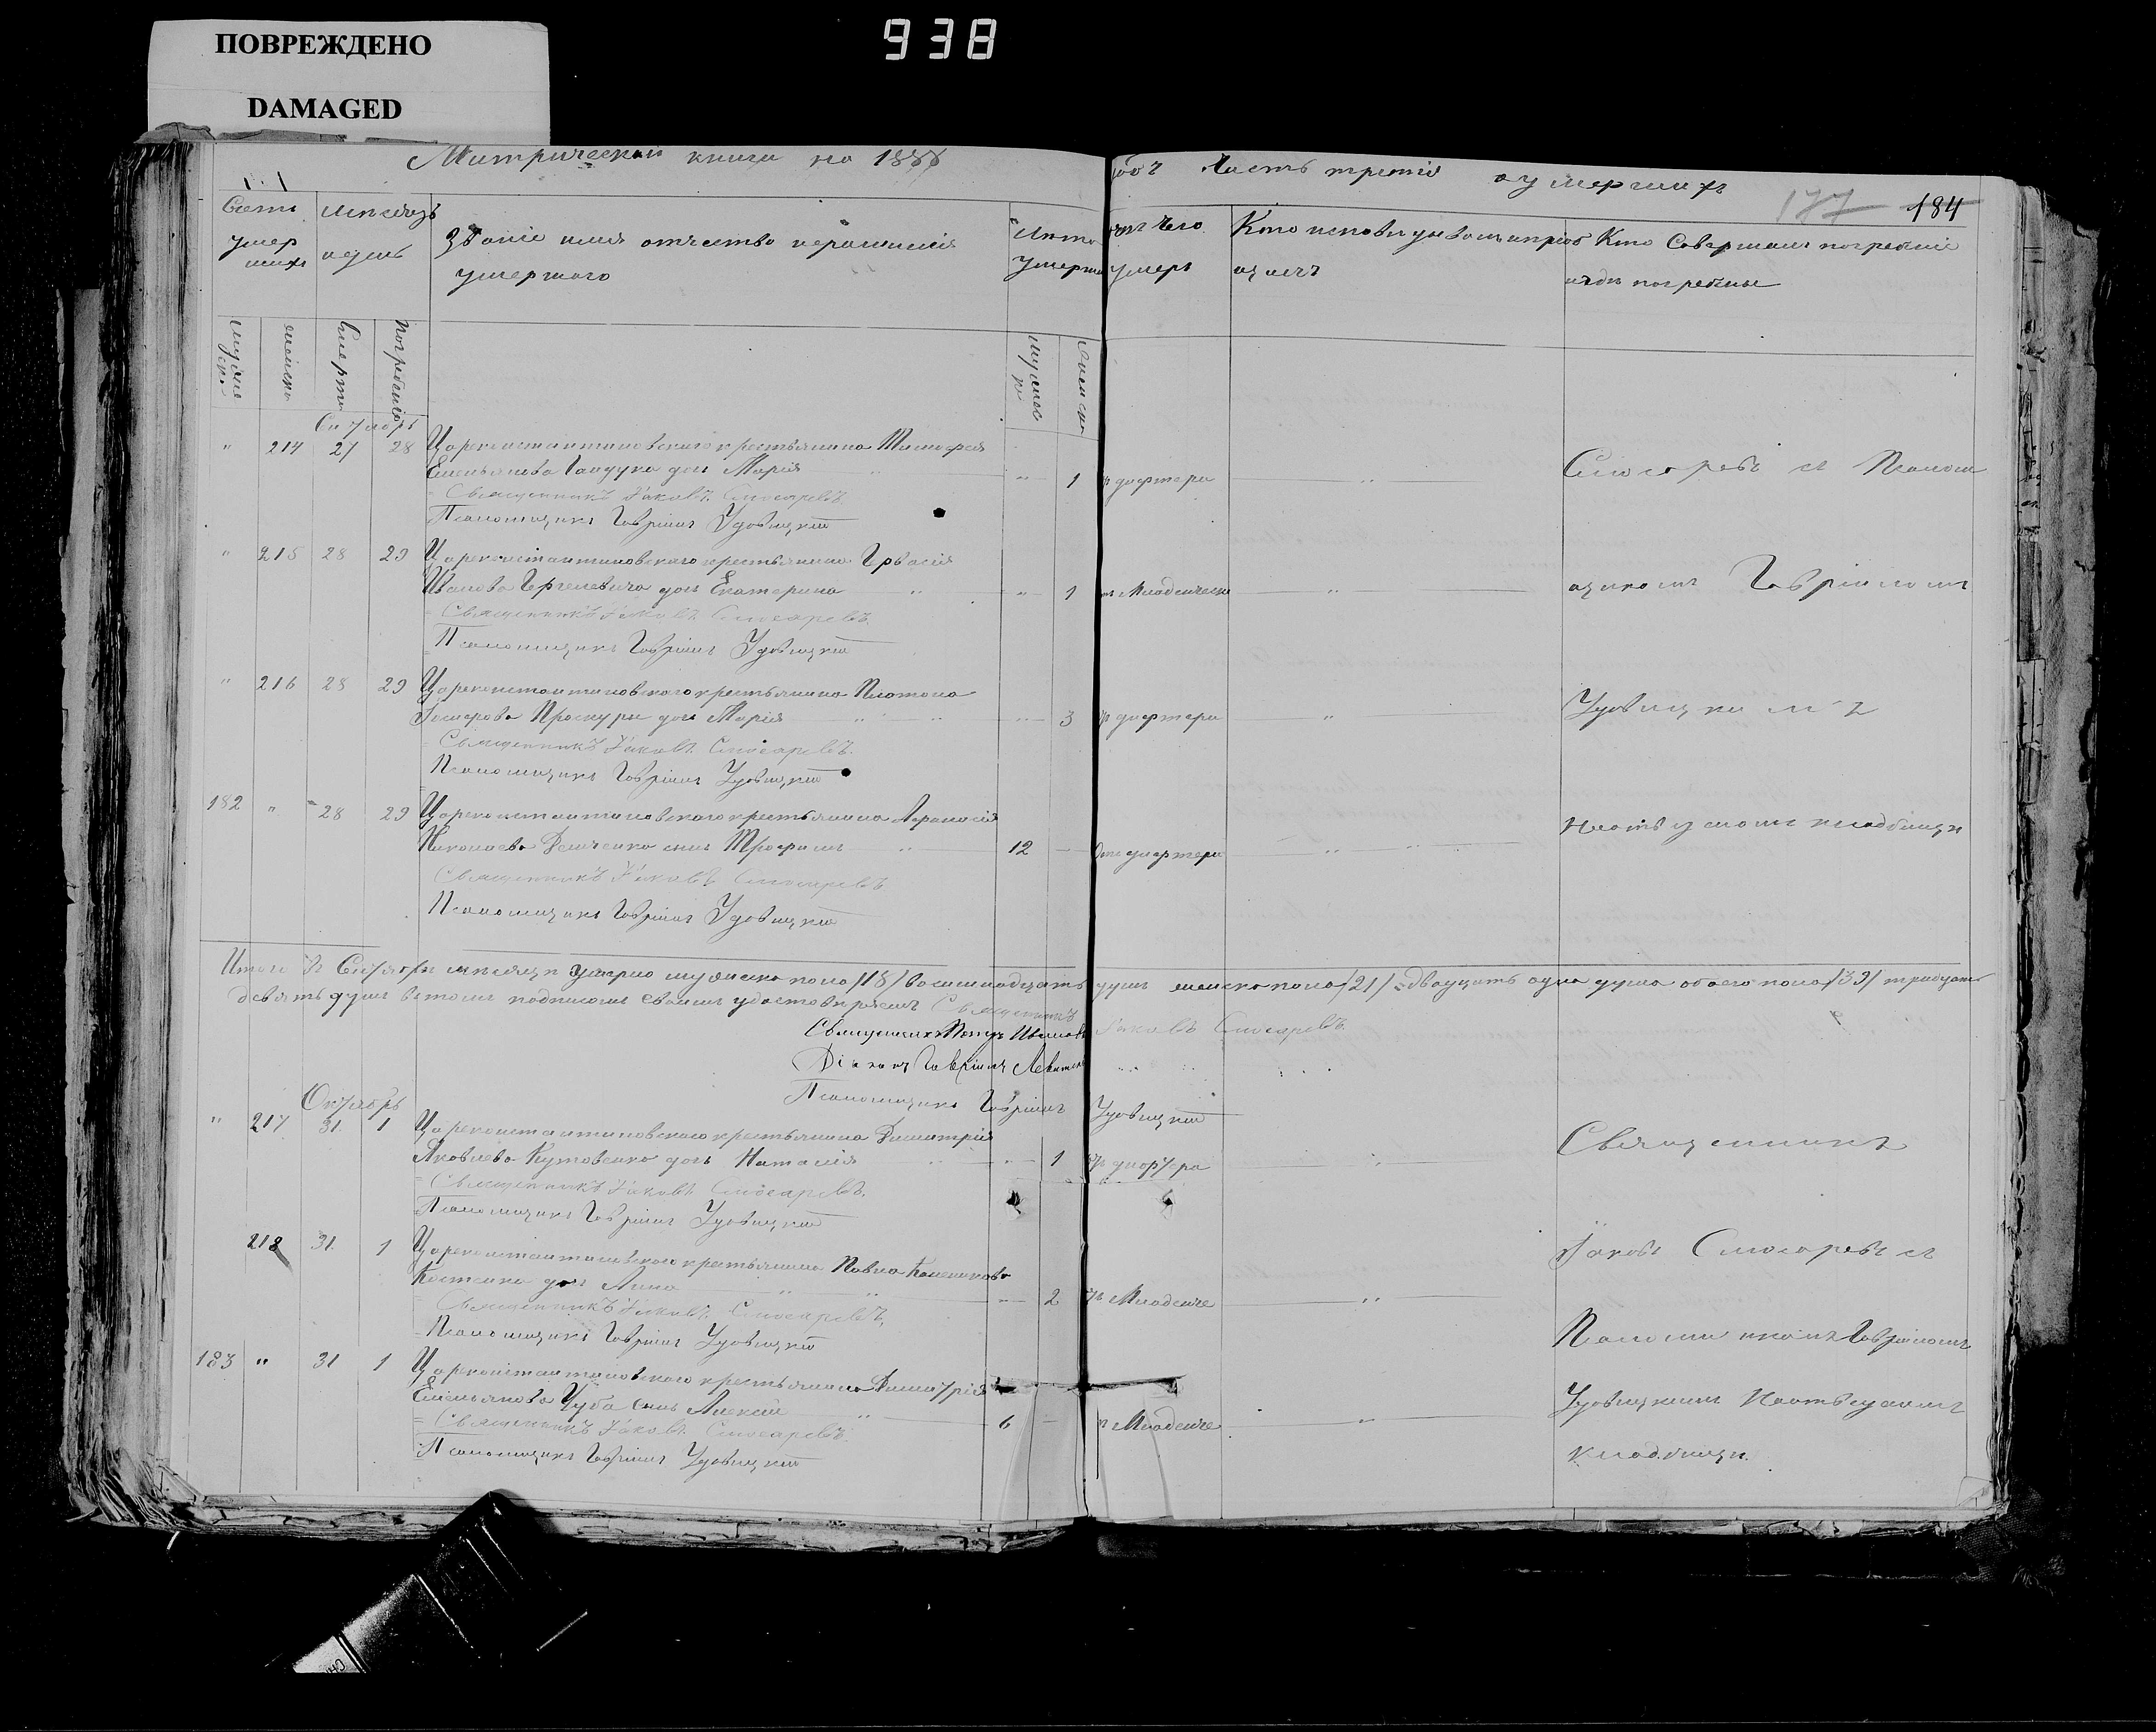 938
ПОВРЕЖДЕНО
DAMAGED
Митрической книги на 1888 годъ Часть третія о умершихъ
177 184
Счетъ умершихъ
Мѣсяцъ и день
Званіе имя отчество и фамилія умершаго
Лѣта умершаго
отъ чего умеръ
Кто исповѣдывалъ и пріобщалъ
Кто Совершалъ погребеніе и гдѣ погребены
мужска
женска
Смерти
Погребенія
мужска
женска
Сентябрь
" 214 27 28 Цареконстантиновского крестьянина Тимофея
Емельянова Гайдука дочь Марія " 1 дифтери "
Священникъ Іаковъ Слюсаревъ
Псаломщикъ Гавріилъ Удовицкій
Слюсаревъ съ Псалом
" 215 28 29 Цареконстантиновского крестьянина Гервасія
Иванова дочь Екатерина " 1 Младенческ "
Священникъ Іаковъ Слюсаревъ
Псаломщикъ Гавріилъ Удовицкій
щикомъ Гавріиломъ
" 216 28 29 Цареконстантиновского крестьянина Платона
Проскуры дочь Марія " 3 дифтери "
Священникъ Іаковъ Слюсаревъ
Псаломщикъ Гавріилъ Удовицкій
Удовицкимъ
182 " 28 29 Цареконстантиновского крестьянина Афанасія
Николаева Демченка сынъ Трофимъ 12 дифтери "
Священникъ Іаковъ Слюсаревъ
Псаломщикъ Гавріилъ Удовицкій
кладбищи
Итого въ Сентябрѣ мѣсяцѣ умерло мужска пола /18/ восимнадцать душъ женска пола /21/ двадцать одна душа обоего пола /39/ тридцать
девять душъ въ томъ подписомъ своимъ удостовѣряемъ Священникъ Іаковъ Слюсаревъ
Священникъ Петръ Ивановъ
Діаконъ Гавріилъ
Псаломщикъ Гавріилъ Удовицкій
Октябрь
" 217 31 1 Цареконстантиновского крестьянина Димитрія
Яковлева Кутовенко дочь Наталія " 1
Священникъ Іаковъ Слюсаревъ
Псаломщикъ Гавріилъ Удовицкій
Священникъ
218 31 1 Цареконстантиновского крестьянина Павла
Костенка дочь Анна " 2 Младенче "
Священникъ Іаковъ Слюсаревъ
Псаломщикъ Гавріилъ Удовицкій
Іаковъ Слюсаревъ съ
Псаломщикомъ Гавріиломъ
183 " 31 1 Цареконстантиновского крестьянина Димитрія
Емельянова Чуба сынъ Алексій 6 Младенче "
Священникъ Іаковъ Слюсаревъ
Псаломщикъ Гавріилъ Удовицкій
Удовицкимъ
кладбищи